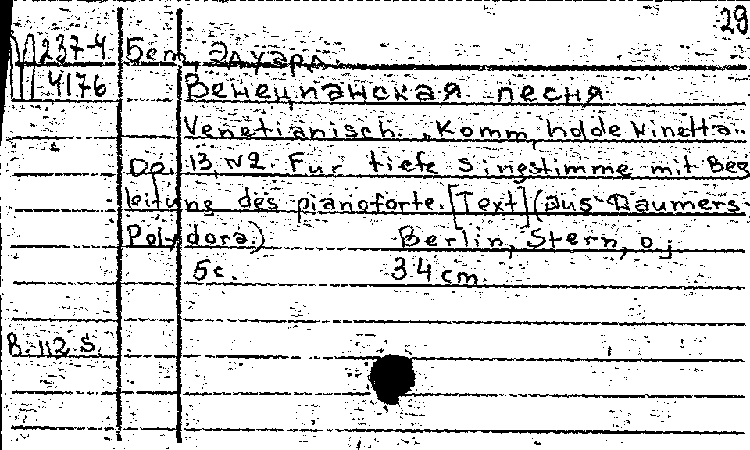 29
М 237-4 Бем, Эдуард.
4176 Венецианская песня
Venetianisch. „Komm, holde Ninetta..
Op. 13, N2. Fur tiefe Singstimme mit Beg
leitung des pianoforte. [Text] (aus Daumers
Polydora.) Berlin, Stern, o. j
5c. 34 cm.
B. 112 S.